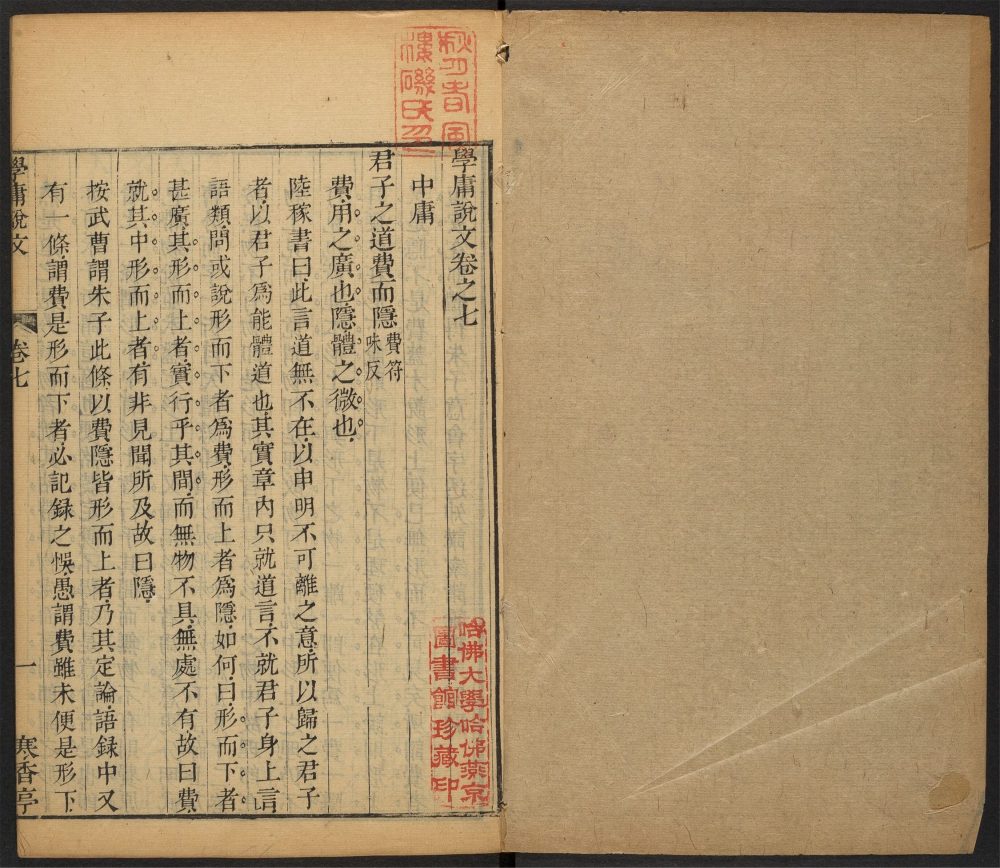 學庸說文卷之七
中庸
君子之道費而隱費符味反
費用之廣也隱體之微也
陸稼書曰此言道無不在以申明不可離之意所以歸之君子
者以君子爲能體道也其實章內只就道言不就君子身上言
語類問或說形而下者爲費形而上者爲隱如何曰形而下者
甚廣其形而上者實行乎其間而無物不具無處不有故曰費
就其中形而上者有非見聞所及故曰隱
按武曹謂朱子此條以費隱皆形而上者乃其定論語錄中又
有一條謂費是形而下者必記録之悞愚謂費雖未便是形下
學庸說文
卷七
一
寒香亭
哈佛大學哈佛燕京
圖書館珍藏印
秋月春風
樓磯氏印